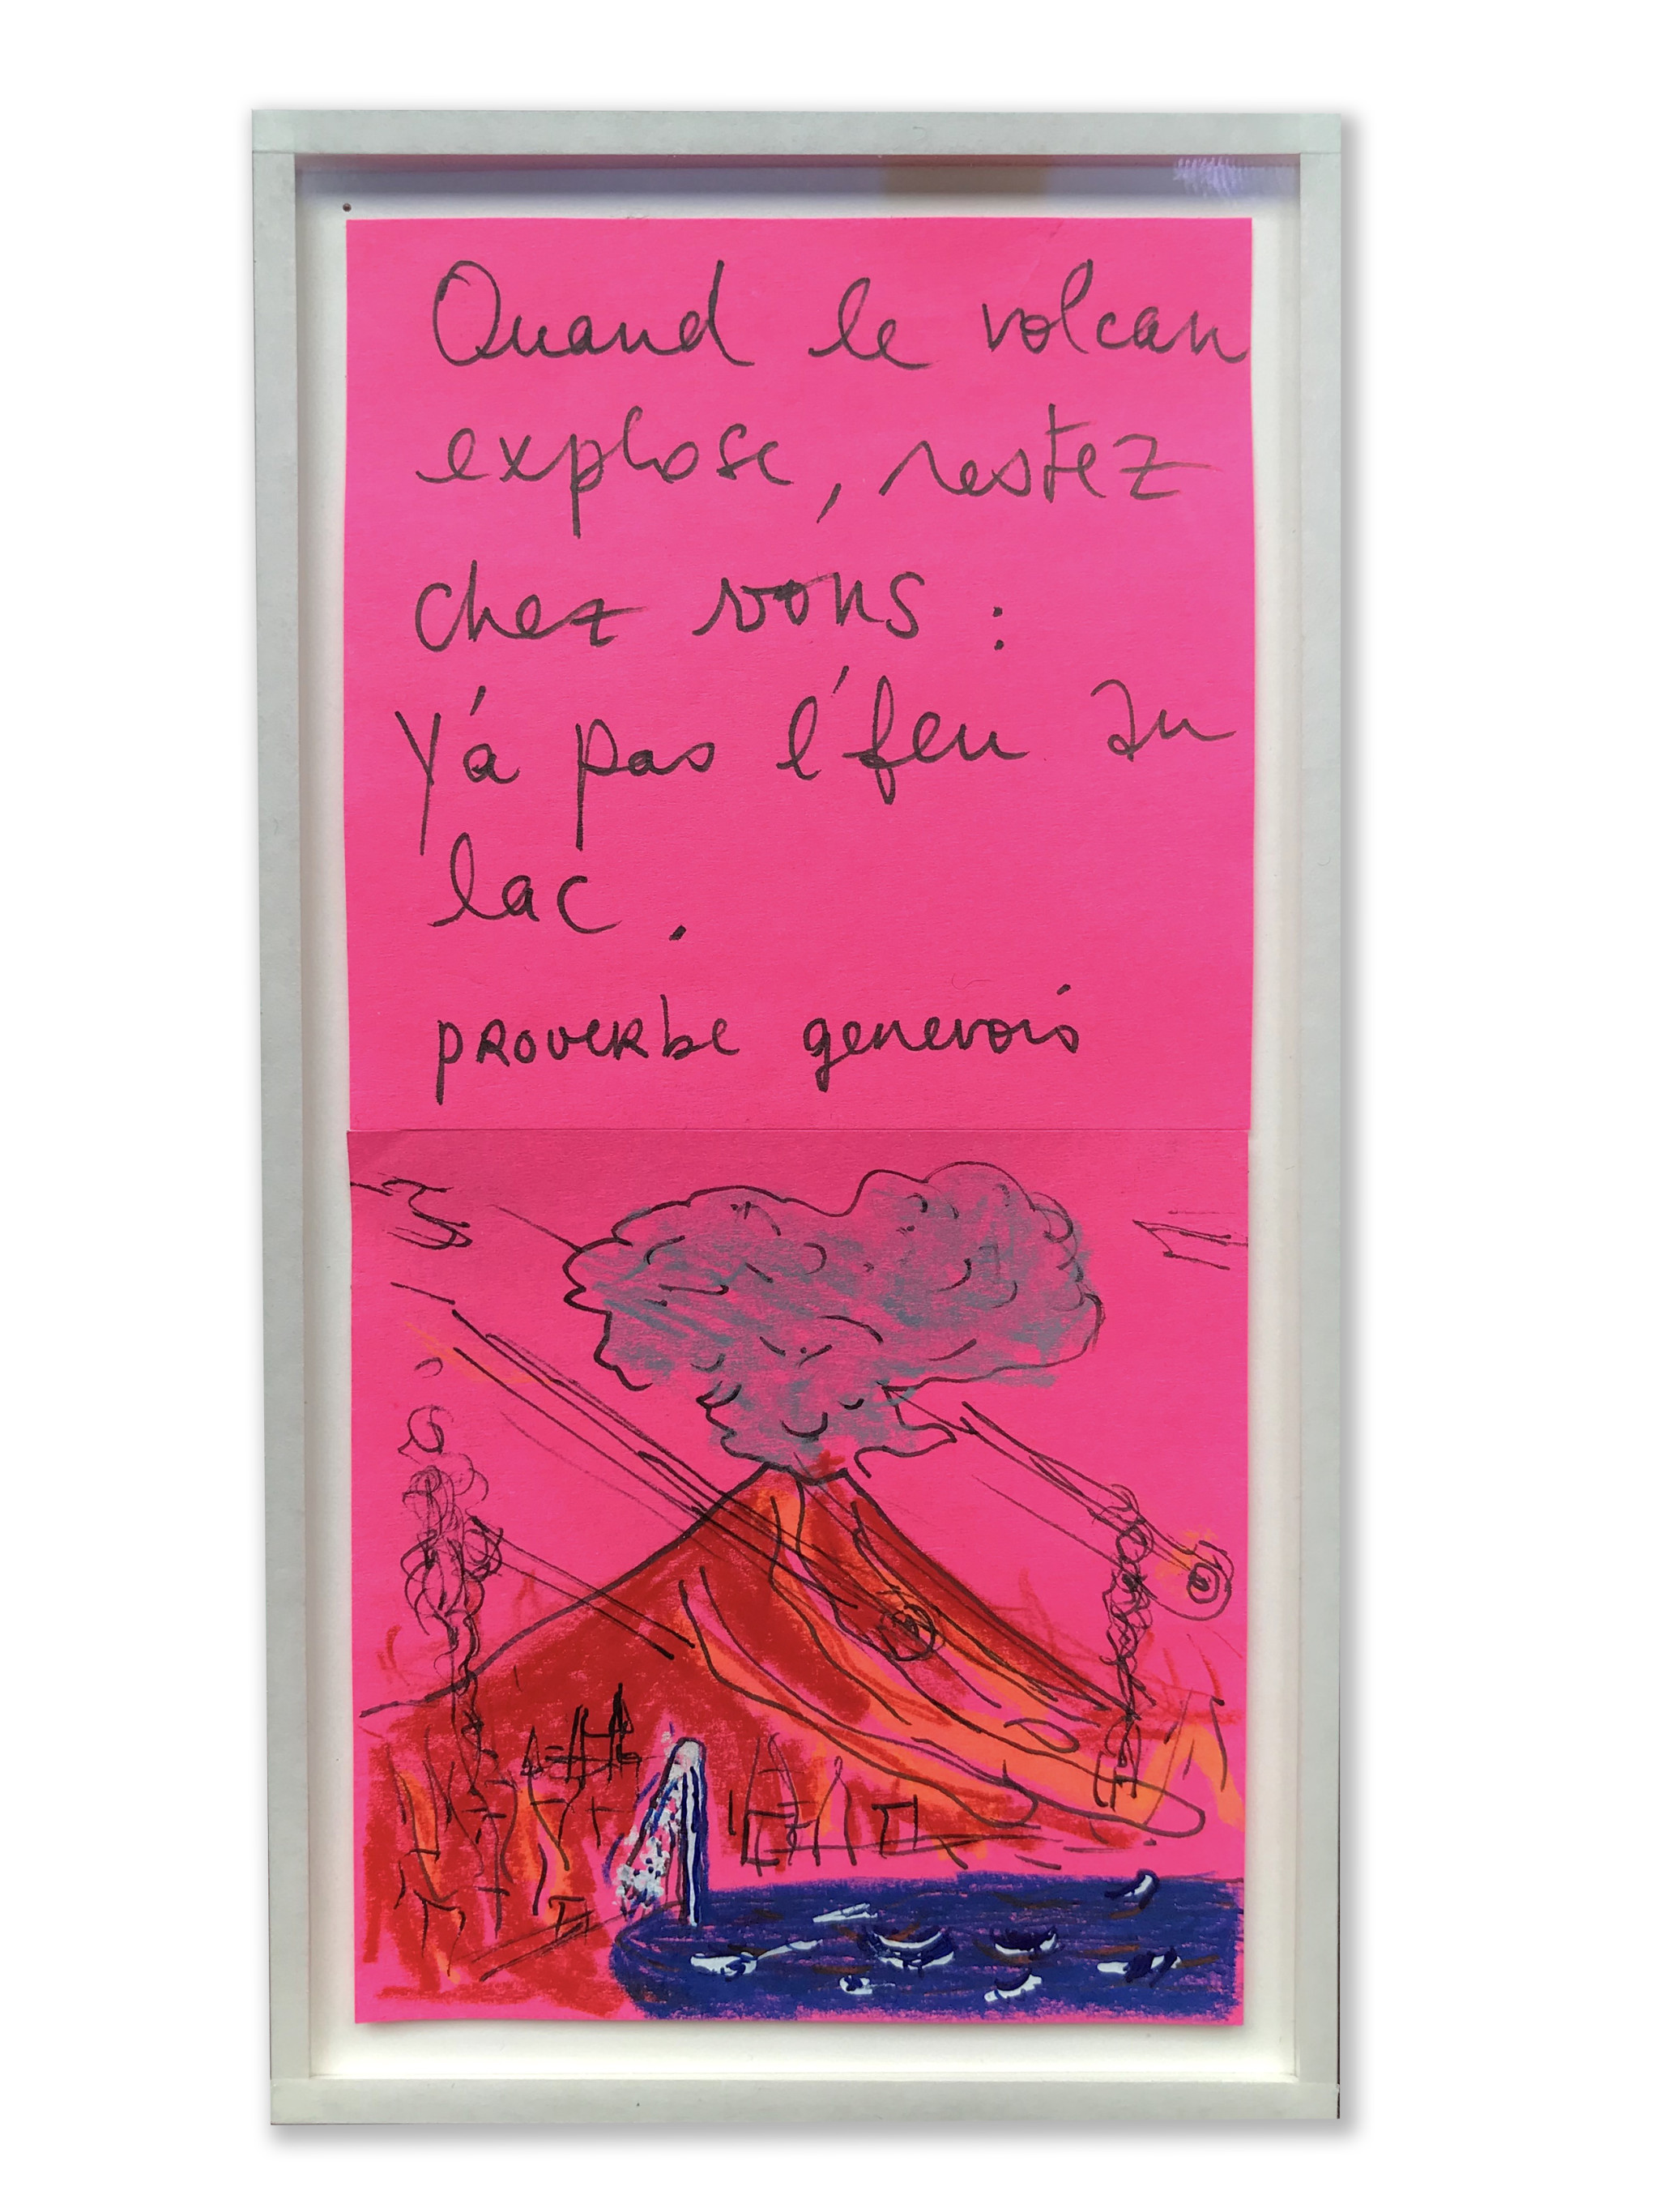 Quand le volcan
explose, restez
chez vous :
Y'a pas l'feu au
lac.
proverbe genevois